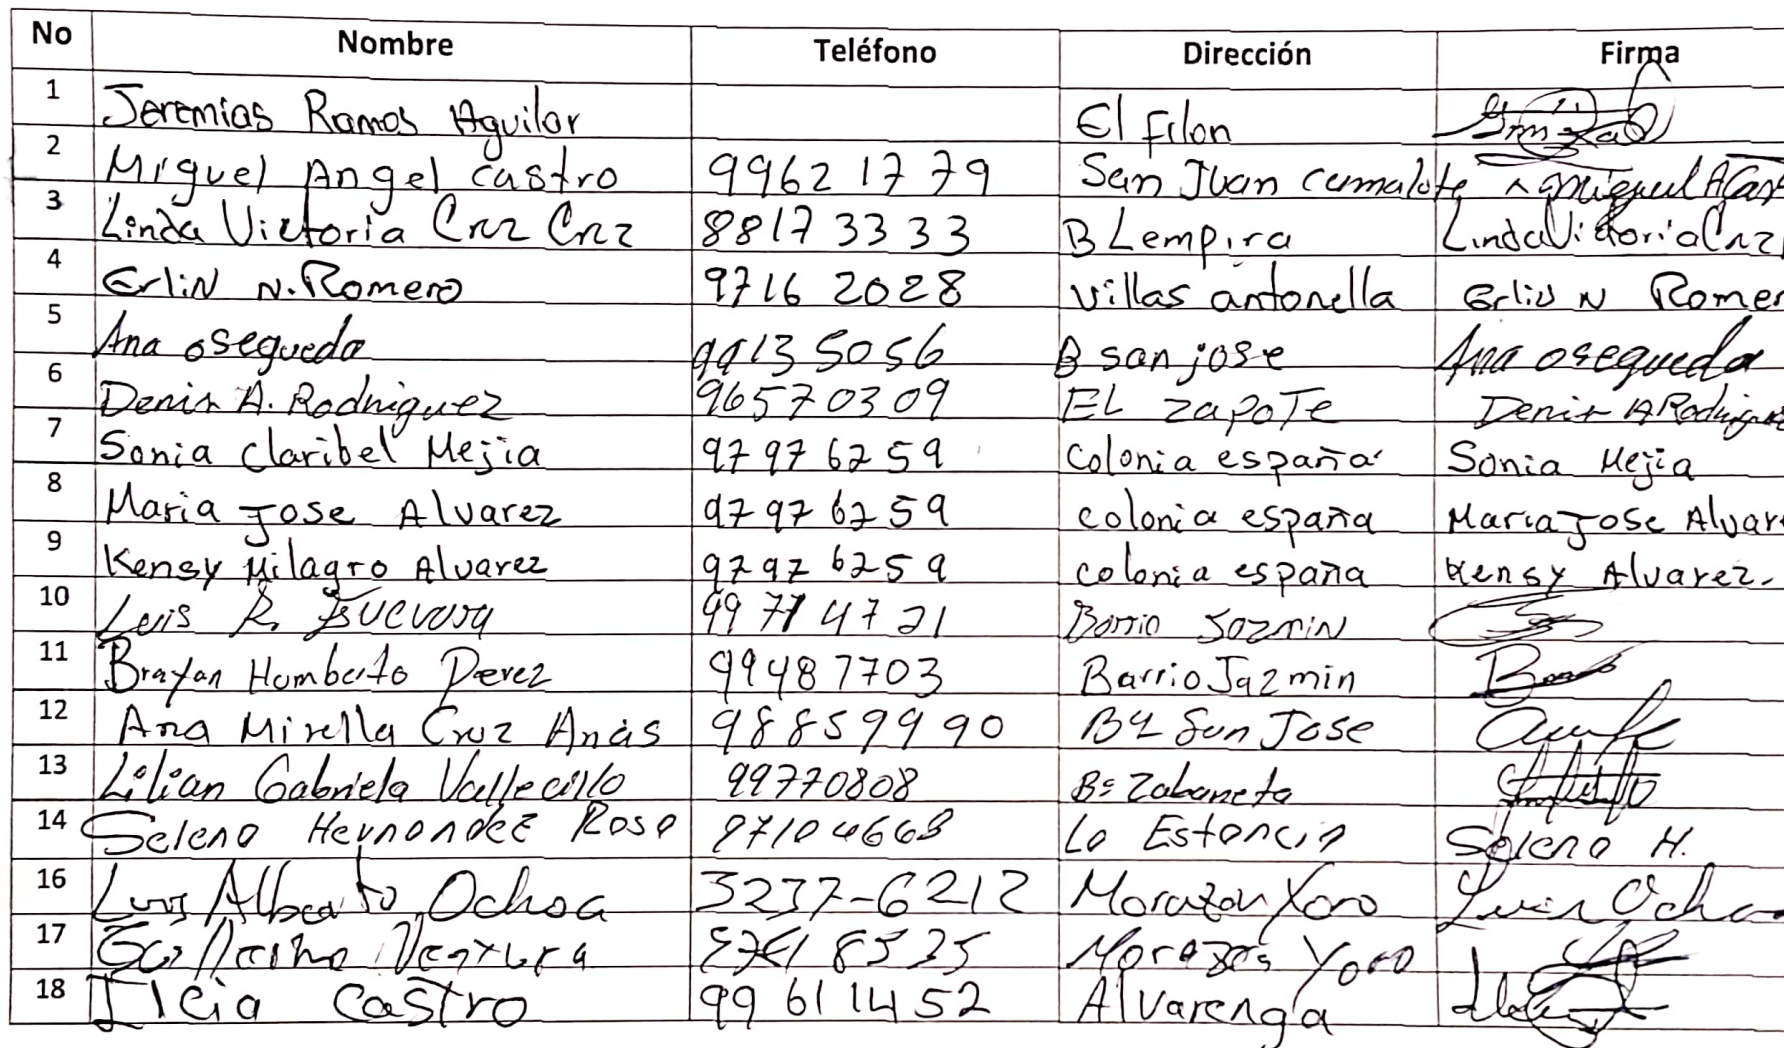 No Nombre Teléfono Dirección Firma
1 Jeremias Ramos Aguilar El Filon
2 Miguel Angel castro 9962 17 79 San Juan camalote Miguel A Cas
3 Linda Victoria Cruz Cruz 8817 33 33 B Lempira Linda Victoria Cruz
4 Erlin N. Romero 9716 2028 villas antonella Erlin N Romer
5 Ana osegueda 9913 5056 B san jose Ana osegueda
6 Denis A. Rodriguez 96570309 EL zapoTe Denis A Rodrigue
7 Sonia Claribel Mejia 97 97 62 59 Colonia españa Sonia Mejia
8 Maria Jose Alvarez 97 97 62 59 colonia españa Maria Jose Alvar
9 Kensy Milagro Alvarez 97 97 62 59 colonia españa Kensy Alvarez.
10 Luis R. 99 77 47 21 Barrio Jazmin
11 Brayan Humberto Perez 99487703 Barrio Jazmin
12 Ana Mirella Cruz 98859990 San Jose
13 Lilian Gabriela Vallecillo 99770808 Bº Zabaneta
14 Selena Hernandez Rosa La Estancia Selena H.
16 Luis Alberto Ochoa 3237-6212 Morazan Yoro Luis Ochoa
17 Guillermo Ventura Morazan Yoro
18 Ilcia Castro 99 61 14 52 Alvarenga